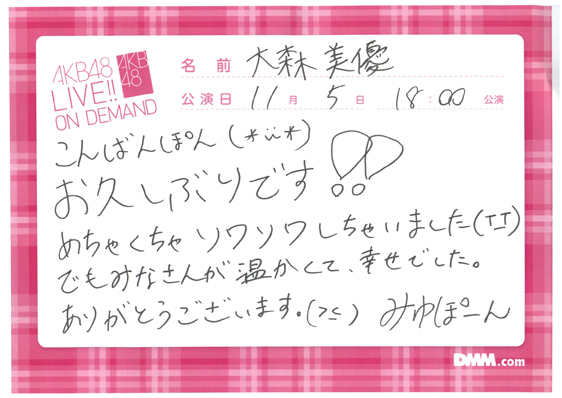 AKB48
LIVE!!
ON DEMAND
AKB
48
名前 大森美優
公演日 11月 5日 18:00 公演
こんばんぽん(*ü*)
お久しぶりです!!
めちゃくちゃソワソワしちゃいました(TT)
でもみなさんが温かくて、幸せでした。
ありがとうございます。(>≤) みゆぽーん
DMM.com